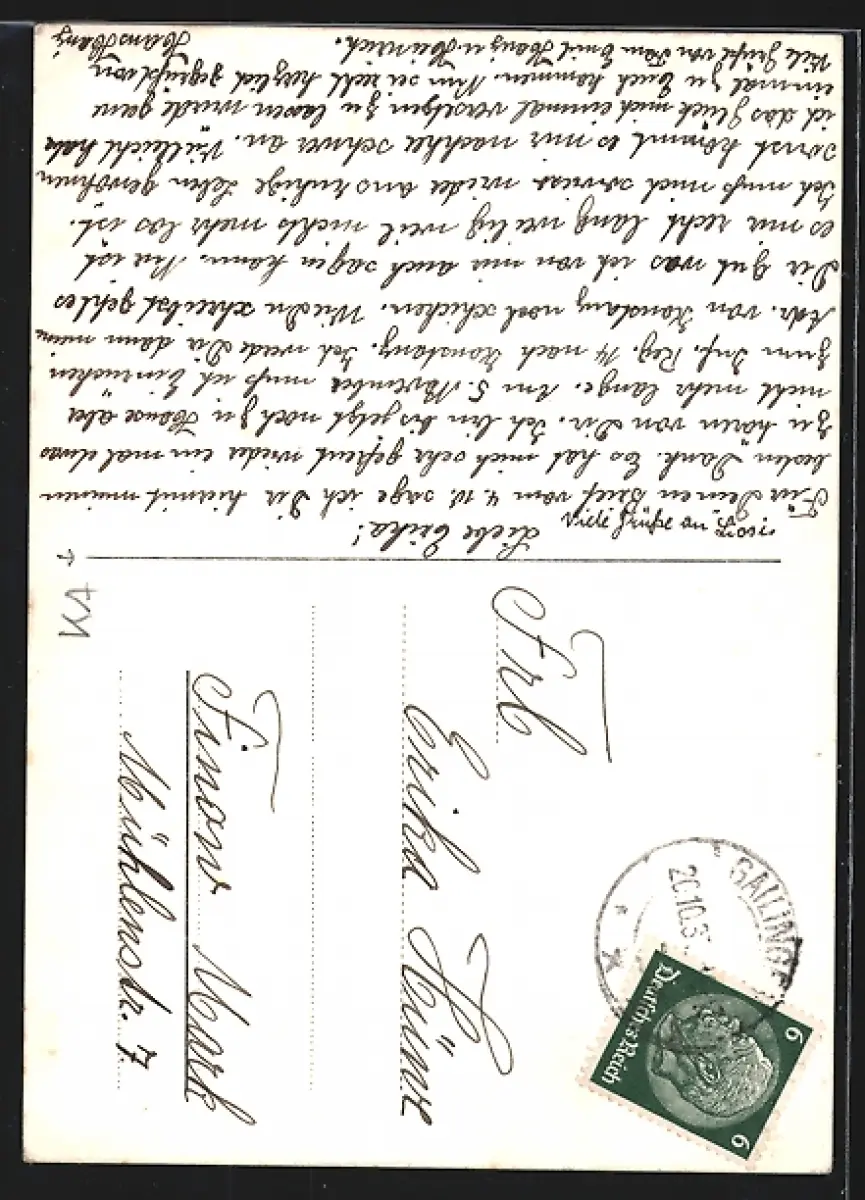 Liebe Erika!
Viele Grüße an
Für Deinen Brief vom 4.10. sage ich Dir hiermit meinen
besten Dank. Es hat mich sehr gefreut wieder ein mal etwas
zu hören von Dir. Ich bin bis jetzt noch zu Hause aber
nicht mehr lange. Am 5. November muß ich Einrücken
zum Inf. Reg. 14 nach Konstanz. Ich werde Dir dann meine
Adr. von Konstanz noch schicken. Wie Du schreibst geht es
Dir gut was ich von mir auch sagen kann. Nur ist
es mir recht lang weilig weil nichts mehr los ist.
Ich muß mich soviest wieder ans ruhige Leben gewöhnen
sonst kommt es mir nachher schwer an. Vielleicht habe
ich das Glück mich einmal versetzen zu lassen würde gern
einmal zu Euch kommen. Nun sei recht herzlich gegrüßt von
Viele Grüße von Fam Emil Hanz u. Heinrich.
Hans Hanz
Frl
Erika Hüne
Finow Mark
Mühlenstr. 7
GAILINGE
20.10.3
Deutsches Reich
6
6